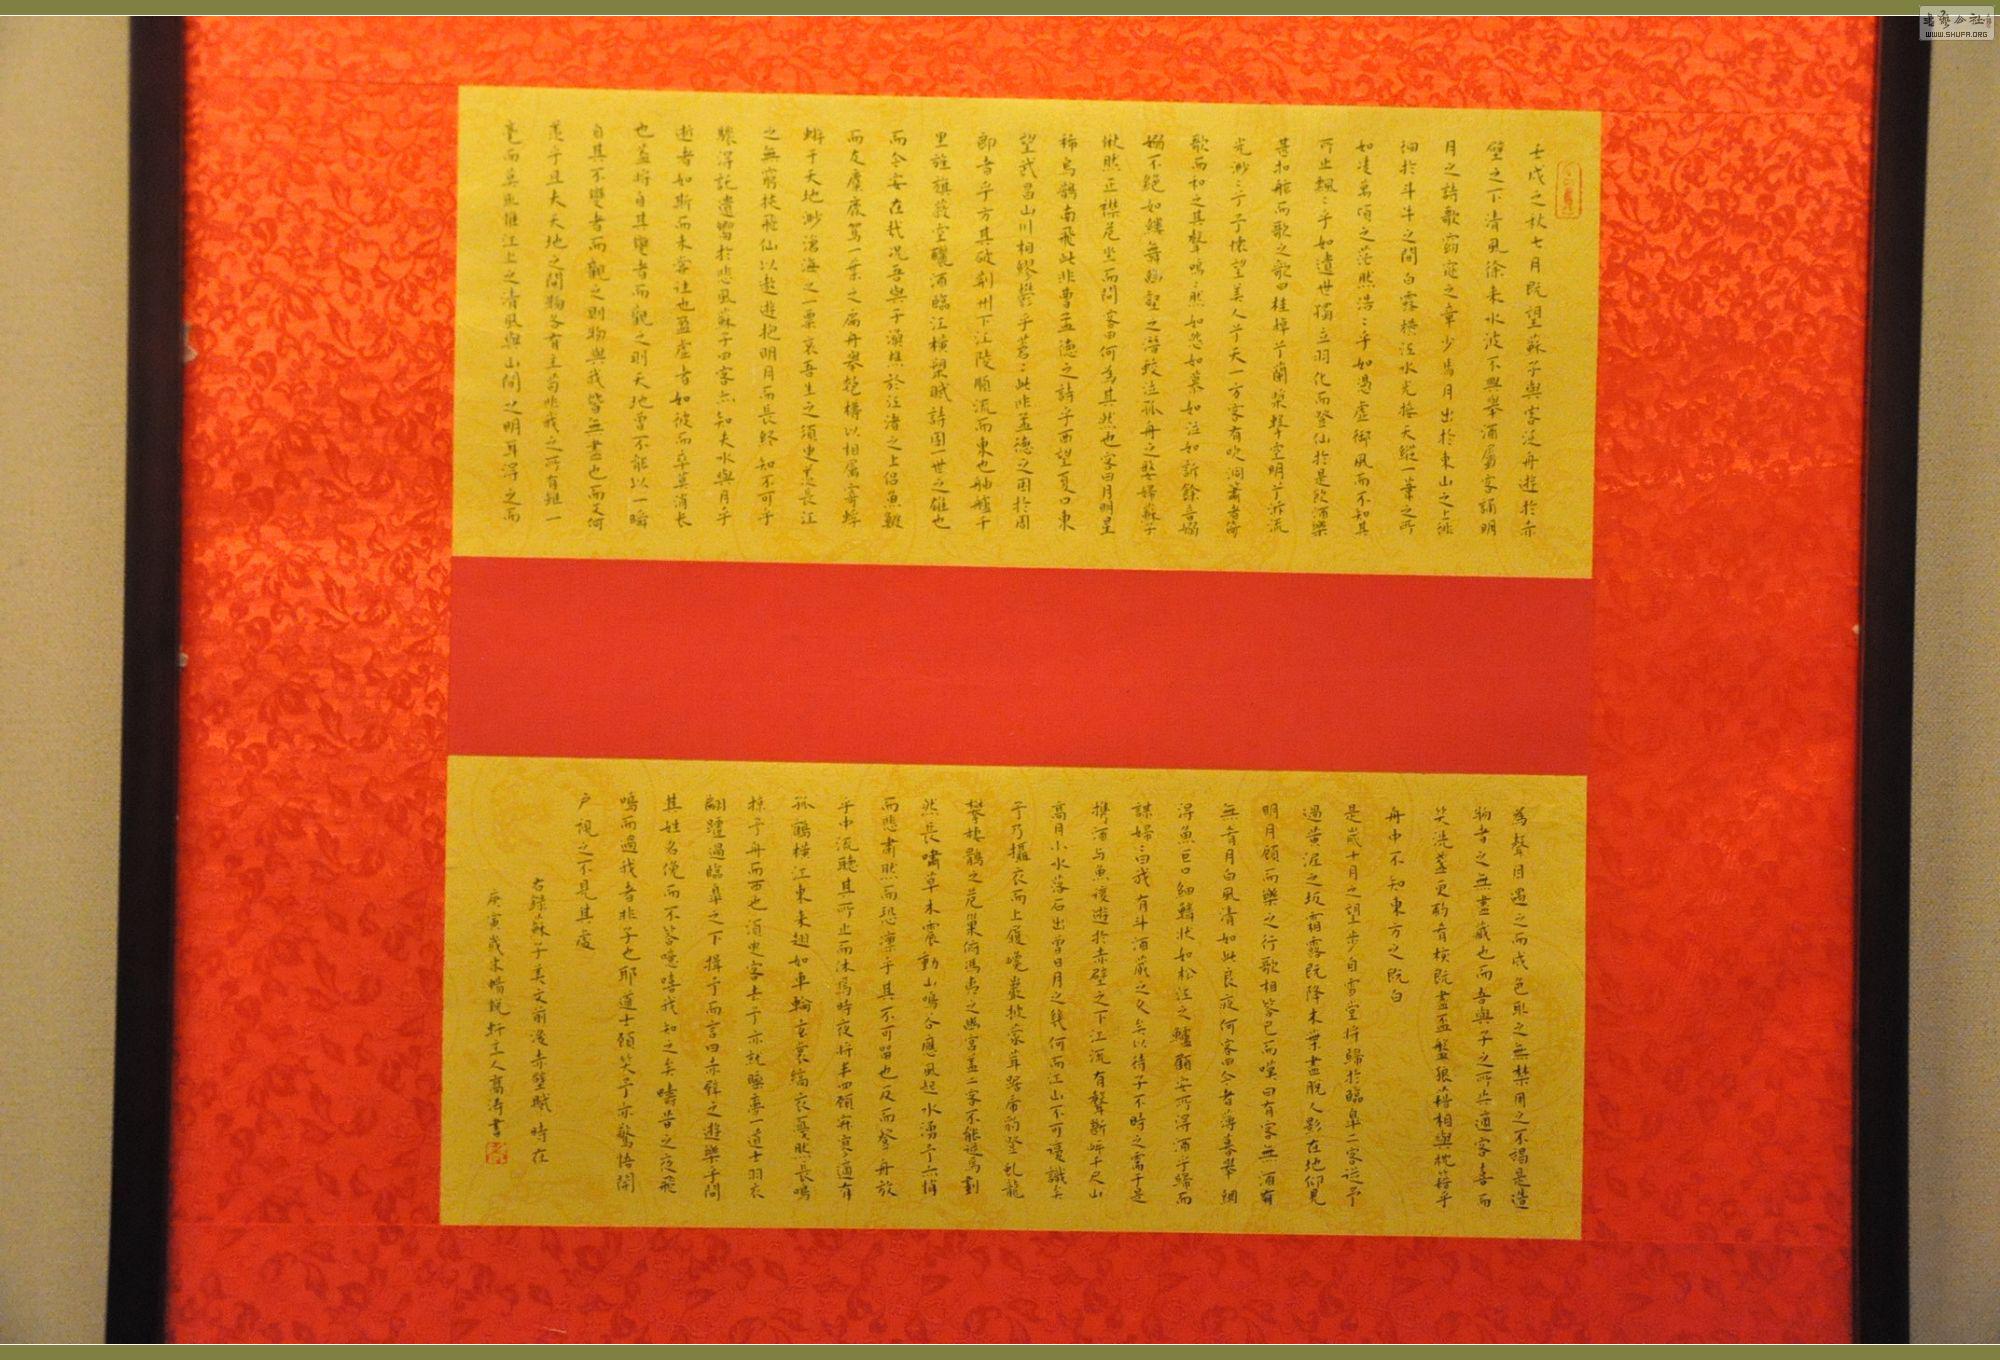 壬戌之秋七月既望蘇子與客泛舟遊於赤
壁之下清風徐來水波不興舉酒屬客誦明
月之詩歌窈窕之章少焉月出於東山之上徘
徊於斗牛之間白露橫江水光接天縱一葦之所
如凌萬頃之茫然浩〻乎如馮虛御風而不知其
所止飄〻乎如遺世獨立羽化而登仙於是飲酒樂
甚扣舷而歌之歌曰桂棹兮蘭槳擊空明兮泝流
光渺〻兮予懷望美人兮天一方客有吹洞簫者倚
歌而和之其聲嗚〻然如怨如慕如泣如訴餘音嫋
嫋不絕如縷舞幽壑之潛蛟泣孤舟之嫠婦蘇子
愀然正襟危坐而問客曰何為其然也客曰月明星
稀烏鵲南飛此非曹孟德之詩乎西望夏口東
望武昌山川相繆鬱乎蒼〻此非孟德之困於周
郎者乎方其破荊州下江陵順流而東也舳艫千
里旌旗蔽空釃酒臨江橫槊賦詩固一世之雄也
而今安在哉況吾與子漁樵於江渚之上侶魚蝦
而友麋鹿駕一葉之扁舟舉匏樽以相屬寄蜉
蝣于天地渺滄海之一粟哀吾生之須臾羨長江
之無窮挾飛仙以遨遊抱明月而長終知不可乎
驟得託遺響於悲風蘇子曰客亦知夫水與月乎
逝者如斯而未嘗往也盈虛者如彼而卒莫消長
也蓋將自其變者而觀之則天地曾不能以一瞬
自其不變者而觀之則物與我皆無盡也而又何
羨乎且夫天地之間物各有主苟非我之所有雖一
毫而莫取惟江上之清風與山間之明月耳得之而
為聲目遇之而成色取之無禁用之不竭是造
物者之無盡藏也而吾與子之所共適客喜而
笑洗盞更酌肴核既盡杯盤狼藉相與枕藉乎
舟中不知東方之既白
是歲十月之望步自雪堂將歸於臨皋二客從予
過黃泥之坂霜露既降木葉盡脫人影在地仰見
明月顧而樂之行歌相答已而嘆曰有客無酒有
無肴月白風清如此良夜何客曰今者薄暮舉網
得魚巨口細鱗狀如松江之鱸顧安所得酒乎歸而
謀婦〻曰我有斗酒藏之久矣以待子不時之需于是
攜酒与魚復遊於赤壁之下江流有聲斷岸千尺山
高月小水落石出曾日月之幾何而江山不可復識矣
予乃攝衣而上履巉巖披蒙茸踞虎豹登虬龍
攀棲鶻之危巢俯馮夷之幽宮蓋二客不能從焉劃
然長嘯草木震動山鳴谷應風起水湧予亦悄
而悲肅然而恐凜乎其不可留也反而登舟放
乎中流聽其所止而休焉時夜將半四顧寂寥適有
孤鶴橫江東來翅如車輪玄裳縞衣戛然長鳴
掠予舟而西也須臾客去予亦就睡夢一道士羽衣
翩躚過臨皋之下揖予而言曰赤壁之遊樂乎問
其姓名俛而不答嗚嘻我知之矣疇昔之夜飛
鳴而過我者非子也耶道士顧笑予亦驚悟開
戶視之不見其處
右錄蘇子美文前後赤壁賦 時在
庚寅歲末 軒主人高濤書
WWW.SHUFA.ORG